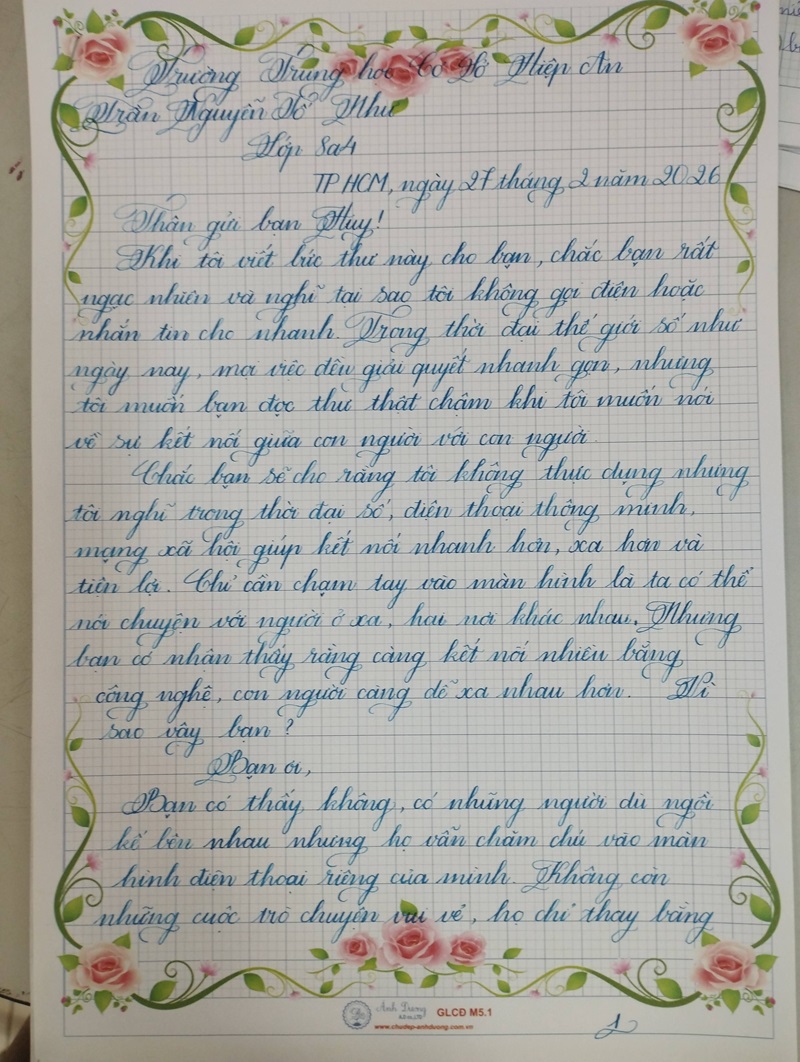 Trường Trung học Cơ Sở Hiệp Ân
Trần Nguyễn Tố Như
Lớp 8a4
TP HCM, ngày 27 tháng 2 năm 2026
Thân gửi bạn Huy!
Khi tôi viết bức thư này cho bạn, chắc bạn rất
ngạc nhiên và nghĩ tại sao tôi không gọi điện hoặc
nhắn tin cho nhanh. Trong thời đại thế giới số như
ngày nay, mọi việc đều giải quyết nhanh gọn, nhưng
tôi muốn bạn đọc thư thật chậm khi tôi muốn nói
về sự kết nối giữa con người với con người.
Chắc bạn sẽ cho rằng tôi không thực dụng nhưng
tôi nghĩ trong thời đại số, điện thoại thông minh,
mạng xã hội giúp kết nối nhanh hơn, xa hơn và
tiện lợi. Chỉ cần chạm tay vào màn hình là ta có thể
nói chuyện với người ở xa, hai nơi khác nhau. Nhưng
bạn có nhận thấy rằng càng kết nối nhiều bằng
công nghệ, con người càng dễ xa nhau hơn. Vì
sao vậy bạn?
Bạn ơi,
Bạn có thấy không, có những người dù ngồi
kế bên nhau nhưng họ vẫn chăm chú vào màn
hình điện thoại riêng của mình. Không còn
những cuộc trò chuyện vui vẻ, họ chỉ thay bằng
Ánh Dương
GLCĐ M5.1
www.chudep-anhduong.com.vn
1